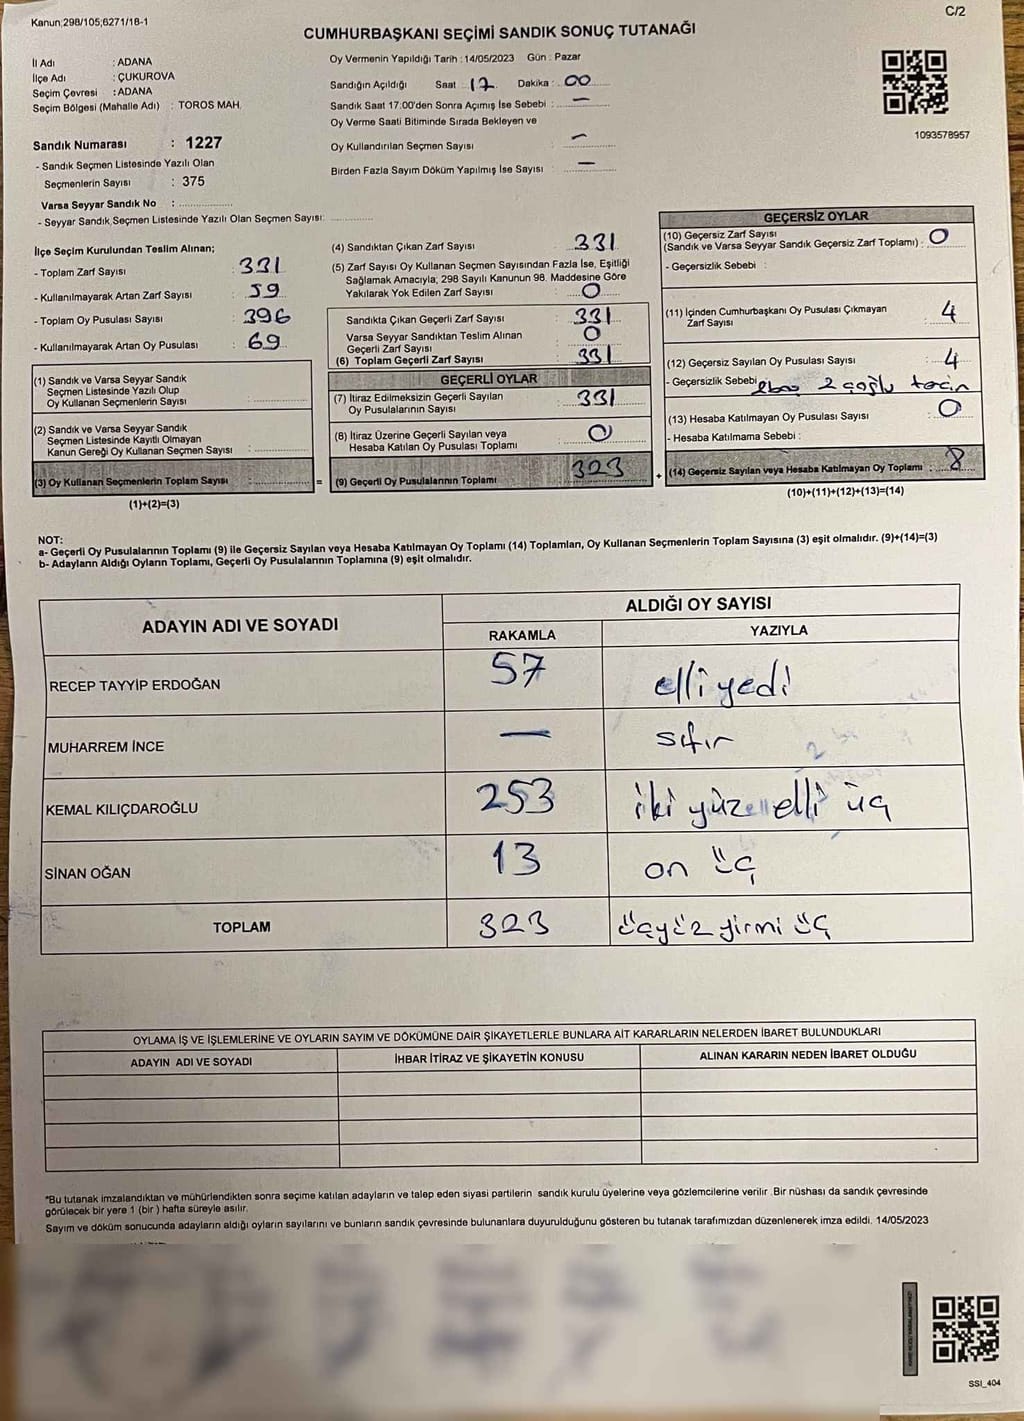 Kanun;298/105;6271/18-1
C/2
CUMHURBAŞKANI SEÇİMİ SANDIK SONUÇ TUTANAĞI
İl Adı : ADANA
İlçe Adı : ÇUKUROVA
Seçim Çevresi : ADANA
Seçim Bölgesi (Mahalle Adı) : TOROS MAH.
Sandık Numarası : 1227
- Sandık Seçmen Listesinde Yazılı Olan
Seçmenlerin Sayısı : 375
Varsa Seyyar Sandık No :
- Seyyar Sandık Seçmen Listesinde Yazılı Olan Seçmen Sayısı:
Oy Vermenin Yapıldığı Tarih : 14/05/2023 Gün : Pazar
Sandığın Açıldığı Saat : 17 Dakika : 00
Sandık Saat 17:00'den Sonra Açımış İse Sebebi : —
Oy Verme Saati Bitiminde Sırada Bekleyen ve
Oy Kullandırılan Seçmen Sayısı : —
Birden Fazla Sayım Döküm Yapılmış İse Sayısı : —
1093578957
İlçe Seçim Kurulundan Teslim Alınan;
- Toplam Zarf Sayısı : 331
- Kullanılmayarak Artan Zarf Sayısı : 59
- Toplam Oy Pusulası Sayısı : 396
- Kullanılmayarak Artan Oy Pusulası : 69
(1) Sandık ve Varsa Seyyar Sandık
Seçmen Listesinde Yazılı Olup
Oy Kullanan Seçmenlerin Sayısı :
(2) Sandık ve Varsa Seyyar Sandık
Seçmen Listesinde Kayıtlı Olmayan
Kanun Gereği Oy Kullanan Seçmen Sayısı :
(3) Oy Kullanan Seçmenlerin Toplam Sayısı : =
(1)+(2)=(3)
(4) Sandıktan Çıkan Zarf Sayısı : 331
(5) Zarf Sayısı Oy Kullanan Seçmen Sayısından Fazla İse, Eşitliği
Sağlamak Amacıyla; 298 Sayılı Kanunun 98. Maddesine Göre
Yakılarak Yok Edilen Zarf Sayısı : 0
Sandıkta Çıkan Geçerli Zarf Sayısı : 331
Varsa Seyyar Sandıktan Teslim Alınan
Geçerli Zarf Sayısı : 0
(6) Toplam Geçerli Zarf Sayısı : 331
GEÇERLİ OYLAR
(7) İtiraz Edilmeksizin Geçerli Sayılan
Oy Pusulalarının Sayısı : 331
(8) İtiraz Üzerine Geçerli Sayılan veya
Hesaba Katılan Oy Pusulası Toplamı : 0
(9) Geçerli Oy Pusulalarının Toplamı : 323 +
GEÇERSİZ OYLAR
(10) Geçersiz Zarf Sayısı
(Sandık ve Varsa Seyyar Sandık Geçersiz Zarf Toplamı) : 0
- Geçersizlik Sebebi :
(11) İçinden Cumhurbaşkanı Oy Pusulası Çıkmayan
Zarf Sayısı : 4
(12) Geçersiz Sayılan Oy Pusulası Sayısı : 4
- Geçersizlik Sebebi 2
(13) Hesaba Katılmayan Oy Pusulası Sayısı : 0
- Hesaba Katılmama Sebebi :
(14) Geçersiz Sayılan veya Hesaba Katılmayan Oy Toplamı : 8
(10)+(11)+(12)+(13)=(14)
NOT:
a- Geçerli Oy Pusulalarının Toplamı (9) ile Geçersiz Sayılan veya Hesaba Katılmayan Oy Toplamı (14) Toplamları, Oy Kullanan Seçmenlerin Toplam Sayısına (3) eşit olmalıdır. (9)+(14)=(3)
b- Adayların Aldığı Oyların Toplamı, Geçerli Oy Pusulalarının Toplamına (9) eşit olmalıdır.
ADAYIN ADI VE SOYADI
ALDIĞI OY SAYISI
RAKAMLA YAZIYLA
RECEP TAYYİP ERDOĞAN 57 elli yedi
MUHARREM İNCE — sıfır
KEMAL KILIÇDAROĞLU 253 iki yüz elli üç
SİNAN OĞAN 13 on üç
TOPLAM 323 üçyüz yirmi üç
OYLAMA İŞ VE İŞLEMLERİNE VE OYLARIN SAYIM VE DÖKÜMÜNE DAİR ŞİKAYETLERLE BUNLARA AİT KARARLARIN NELERDEN İBARET BULUNDUKLARI
ADAYIN ADI VE SOYADI İHBAR İTİRAZ VE ŞİKAYETİN KONUSU ALINAN KARARIN NEDEN İBARET OLDUĞU
*Bu tutanak imzalandıktan ve mühürlendikten sonra seçime katılan adayların ve talep eden siyasi partilerin sandık kurulu üyelerine veya gözlemcilerine verilir. Bir nüshası da sandık çevresinde
görülecek bir yere 1 (bir ) hafta süreyle asılır.
Sayım ve döküm sonucunda adayların aldığı oyların sayılarını ve bunların sandık çevresinde bulunanlara duyurulduğunu gösteren bu tutanak tarafımızdan düzenlenerek imza edildi. 14/05/2023
SSI_404